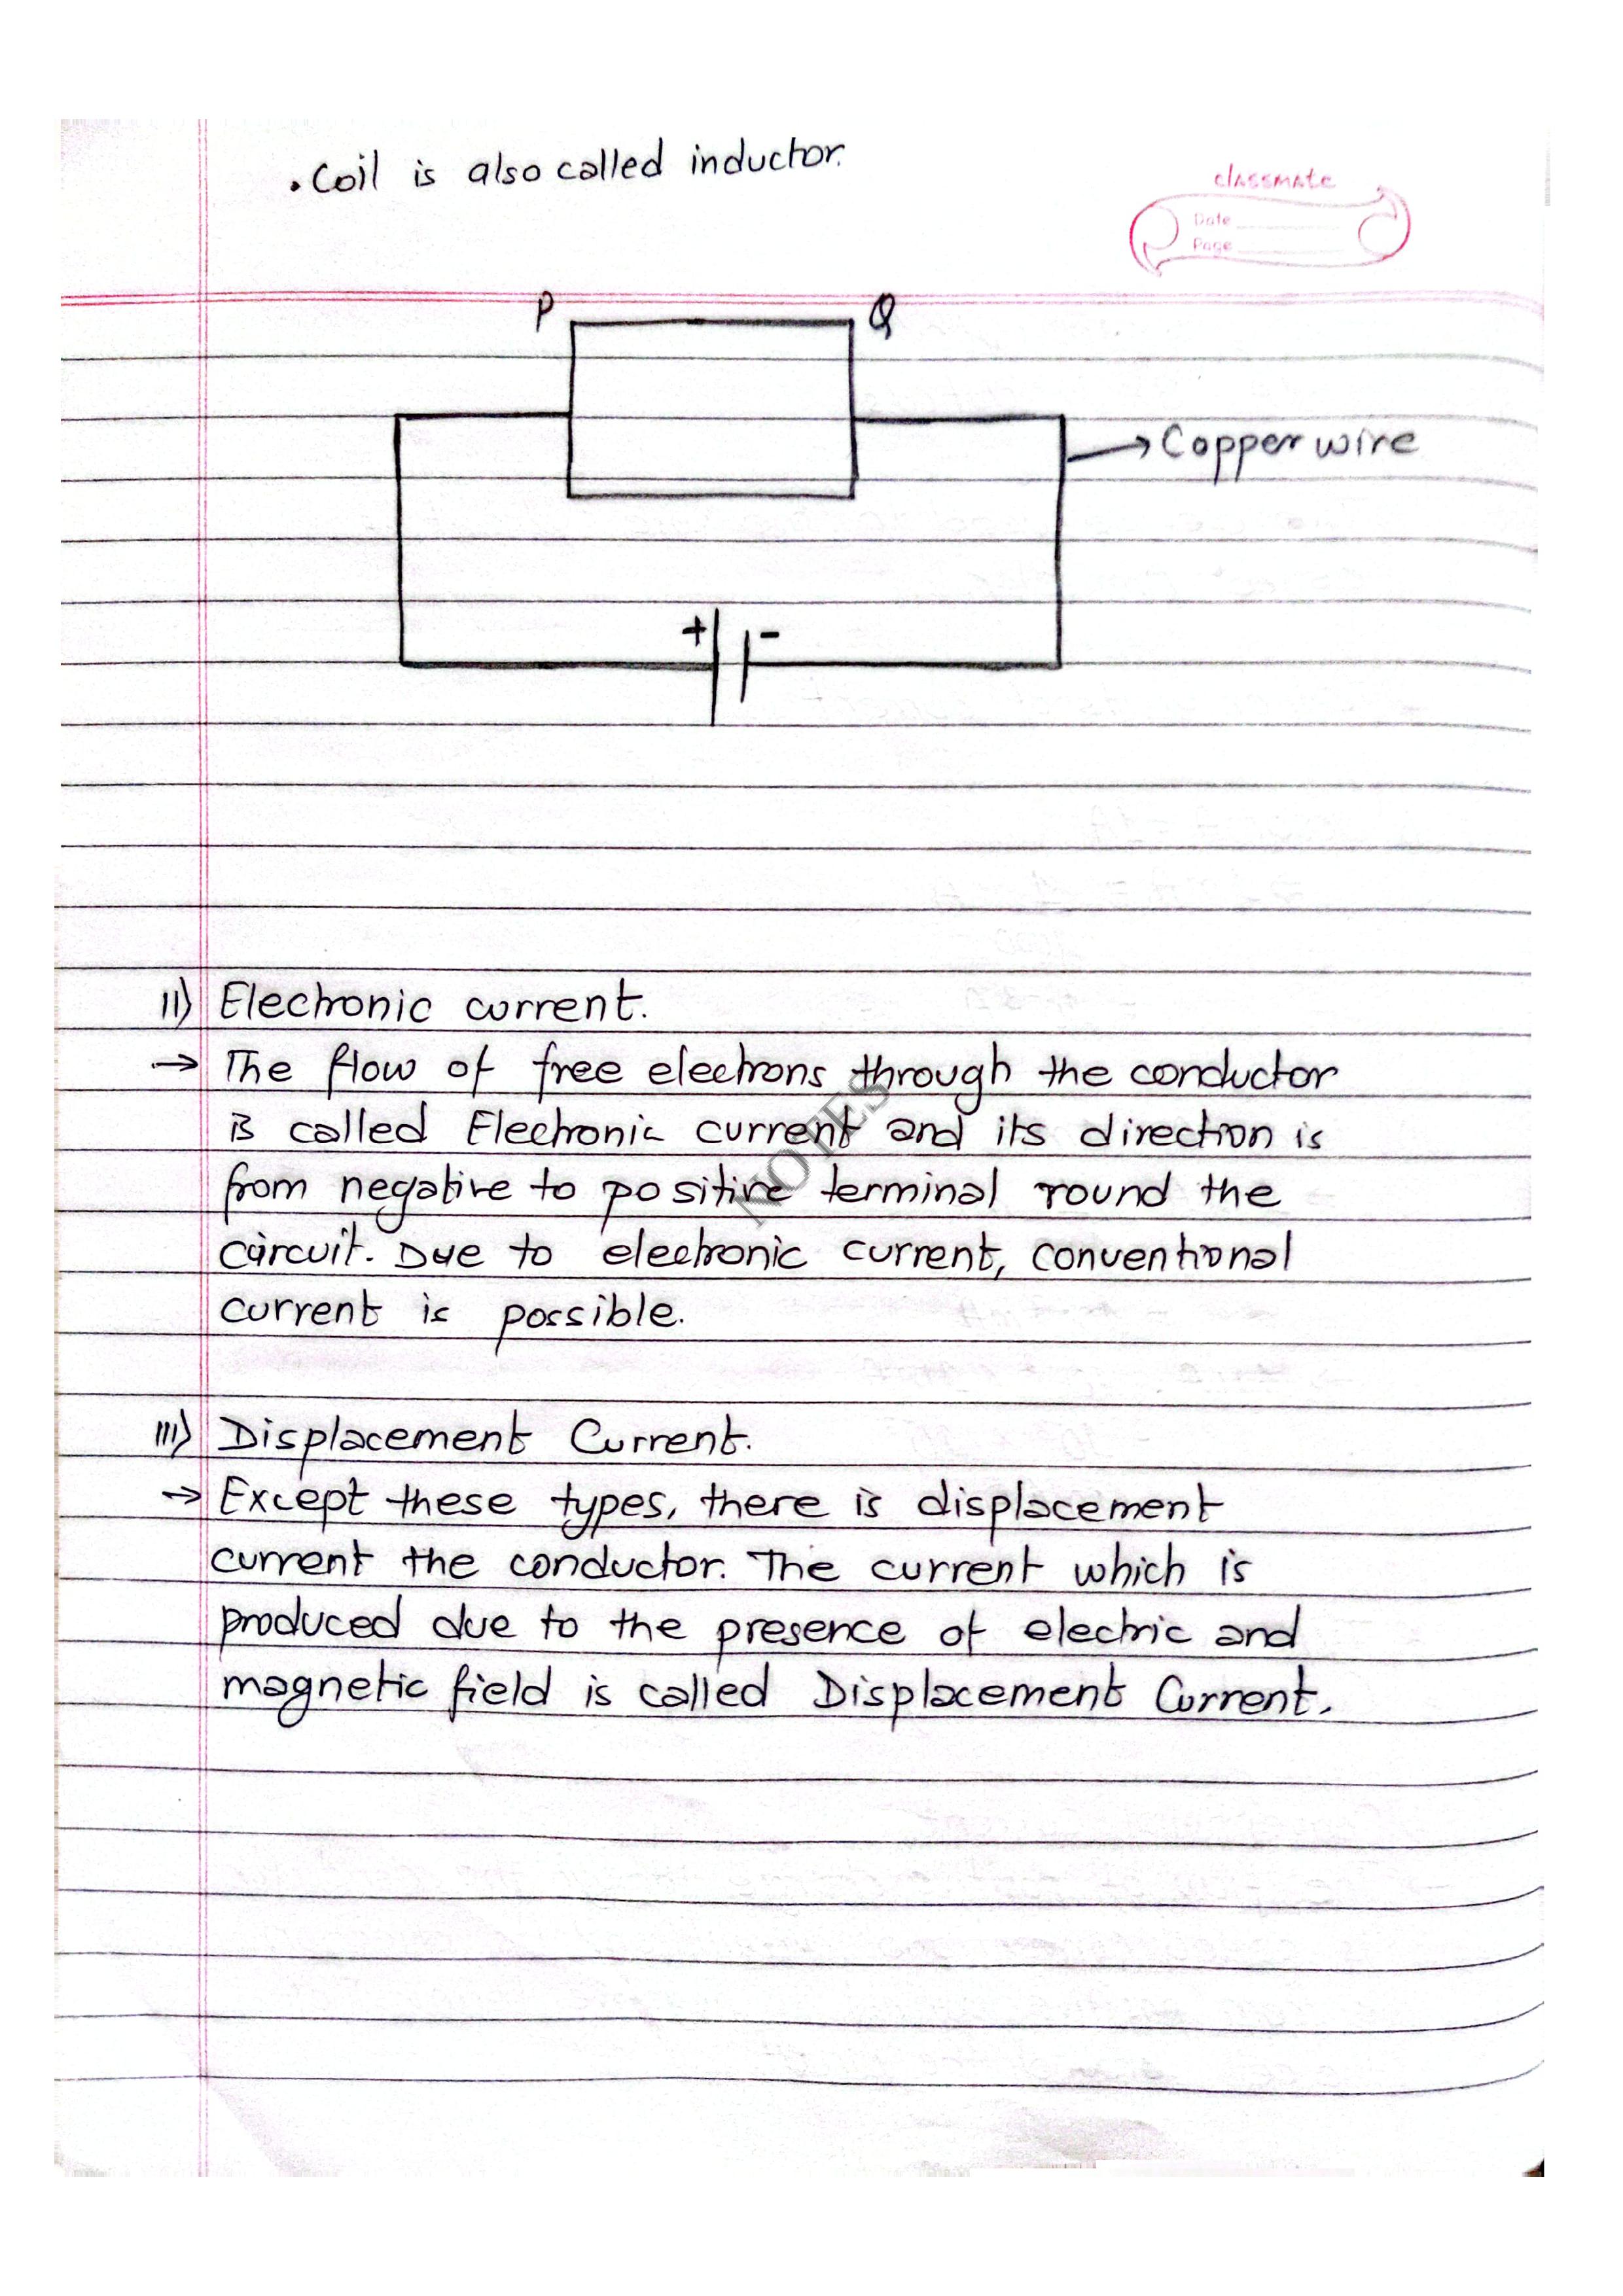 • Coil is also called inductor.
classmate
Date
Page
P
Q
→ Copper wire
+
-
II) Electronic current.
→ The flow of free electrons through the conductor
is called Electronic current and its direction is
from negative to positive terminal round the
circuit. Due to electronic current, conventional
current is possible.
NOTES
III) Displacement Current.
→ Except these types, there is displacement
current the conductor. The current which is
produced due to the presence of electric and
magnetic field is called Displacement Current.